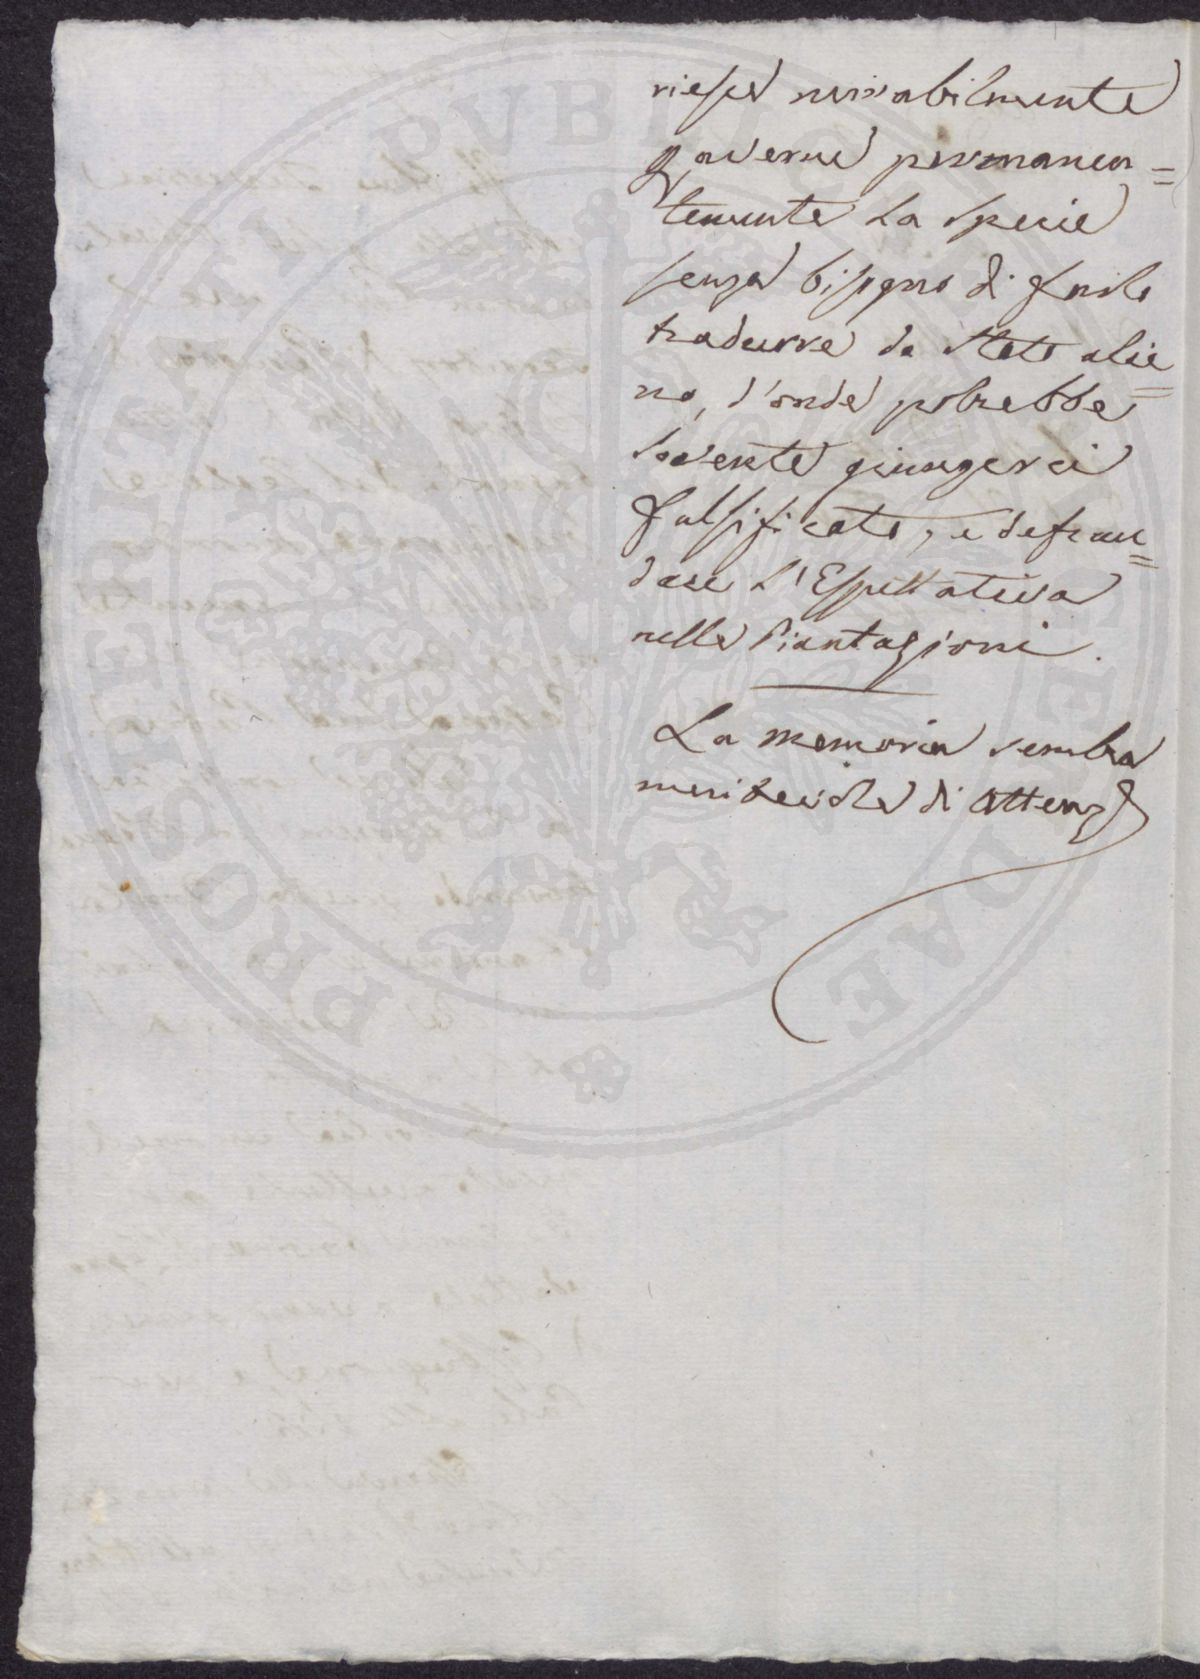 riesce mirabilmente
p averne permanen=
temente la specie
senza bisogno di farlo
tradurre da Stato alie=
no, d'onde potrebbe
sovente giungerci
falsificato, e defrau=
dare l'Espettativa
nelle Piantagioni.
La memoria sembra
meritevole di Atten
PROSPERITATI PVBLICAE AVGENDAE